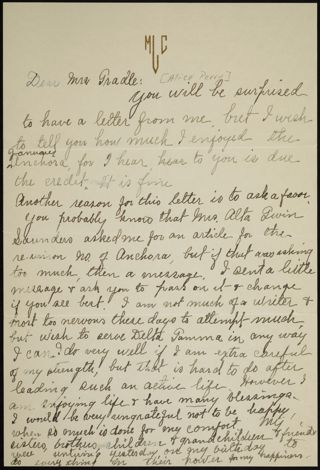 MLC
Dear Mrs. Pradle: [Alice Perry]
You will be surprised
to have a letter from me but I wish
to tell you how much I enjoyed the
January
Anchora for I hear, hear to you is due
the credit. It is fine
Another reason for this letter is to ask a favor.
You probably know that Mrs. Alta Gwin
Saunders asked me for an article for the
reunion no. of Anchora, but if that was asking
too much, then a message. I sent a little
message & ask you to pass on it & change
if you see best. I am not much of a writer &
most too nervous these days to attempt much
but wish to serve Delta Gamma in any way
I can. I do very well if I am extra careful
of my strength, but that is hard to do after
leading such an active life. However I
am enjoying life & have many blessings.
I would be very ungrateful not to be happy
when so much is done for my comfort. My
sisters, brothers, children & grandchildren & friends
were untiring yesterday on my birthday to
do everything in their power for my happiness.